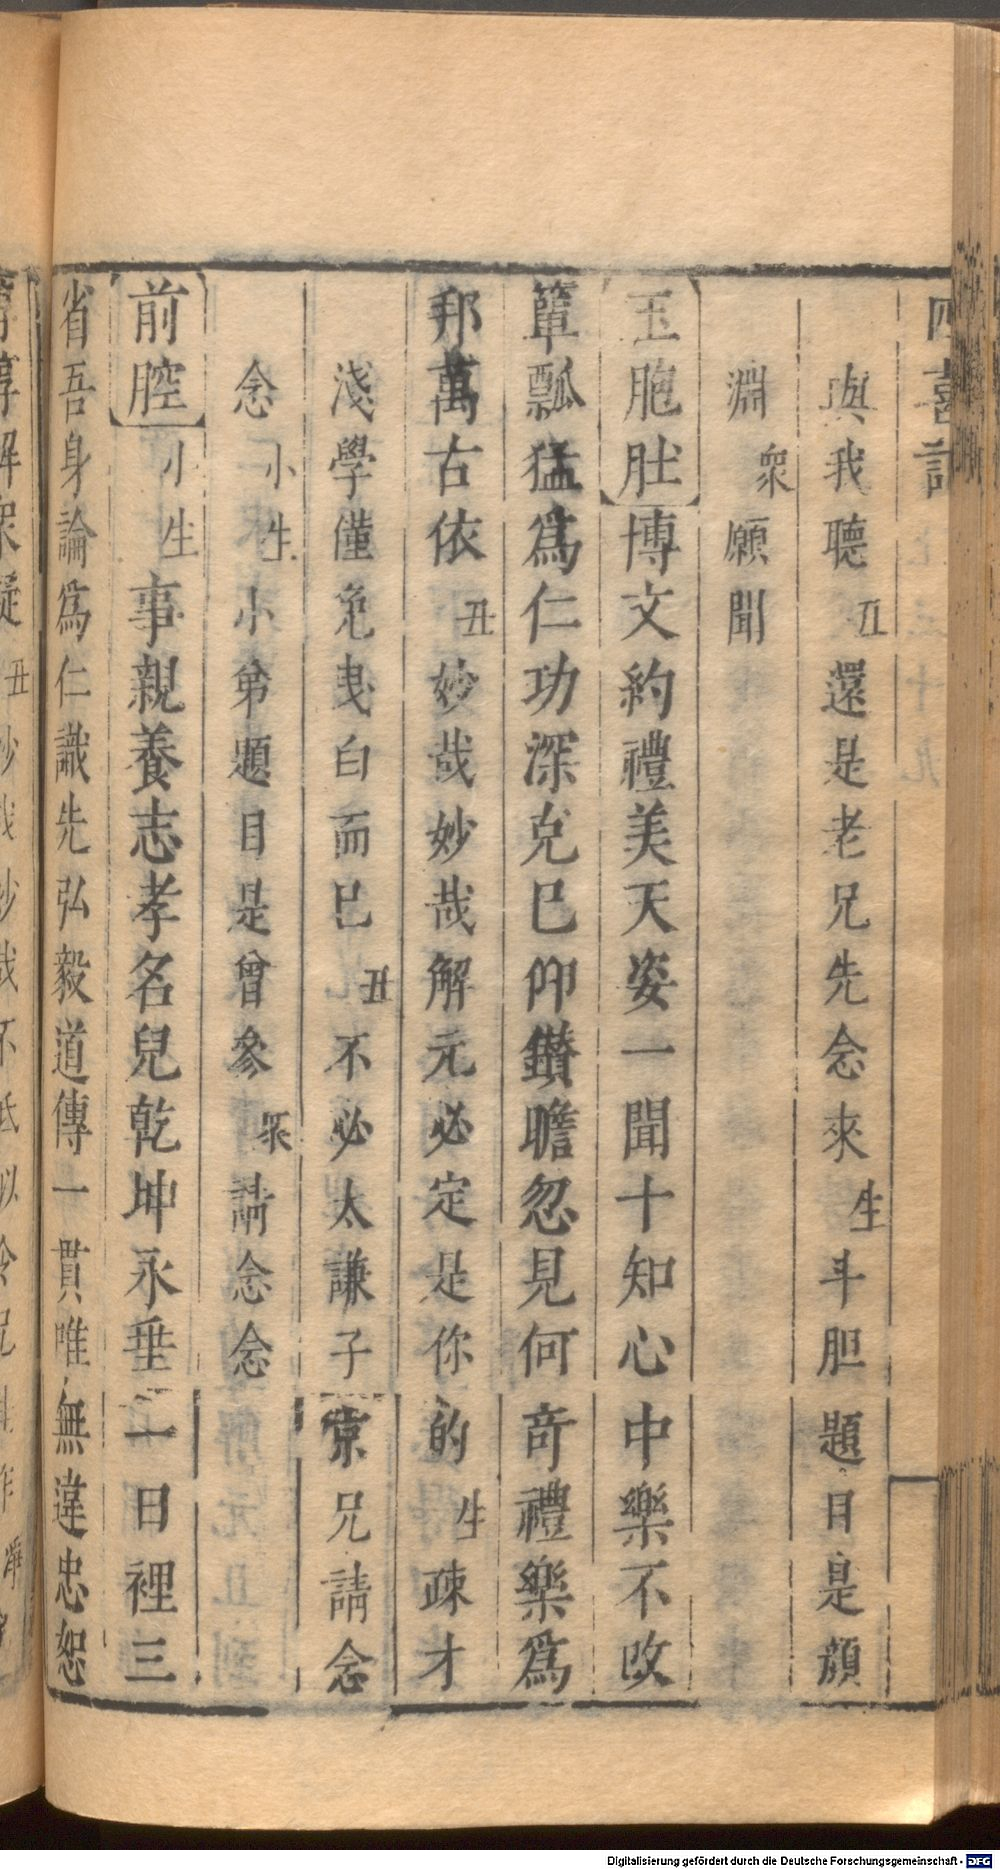 四喜記
與我聽丑還是老兄先念來生斗胆題目是顔
淵衆願聞
玉胞肚博文約禮美天姿一聞十知心中樂不改
簞瓢猛爲仁功深克巳仰鑚瞻忽見何竒禮樂爲
邦萬古依丑妙哉妙哉解元必定是你的生疎才
淺學僅免曳白而巳丑不必太謙子京兄請念
念小生小弟題目是曾參衆請念念
前腔小生事親養志孝名兒乾坤永垂一日裡三
省吾身論爲仁識先弘毅道傳一貫唯無違忠恕
Digitalisierung gefördert durch die Deutsche Forschungsgemeinschaft - DFG